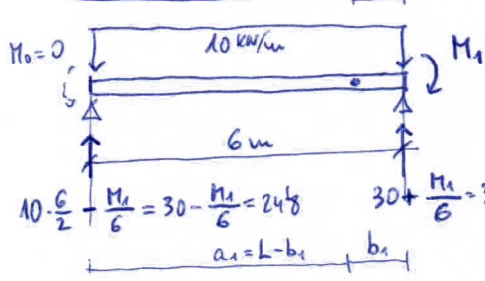 10 kN/m
M₀=0
M₁
6 m
10·6/2 - M₁/6 = 30 - M₁/6 = 24
30 + M₁/6 =
a₁=L-b₁
b₁